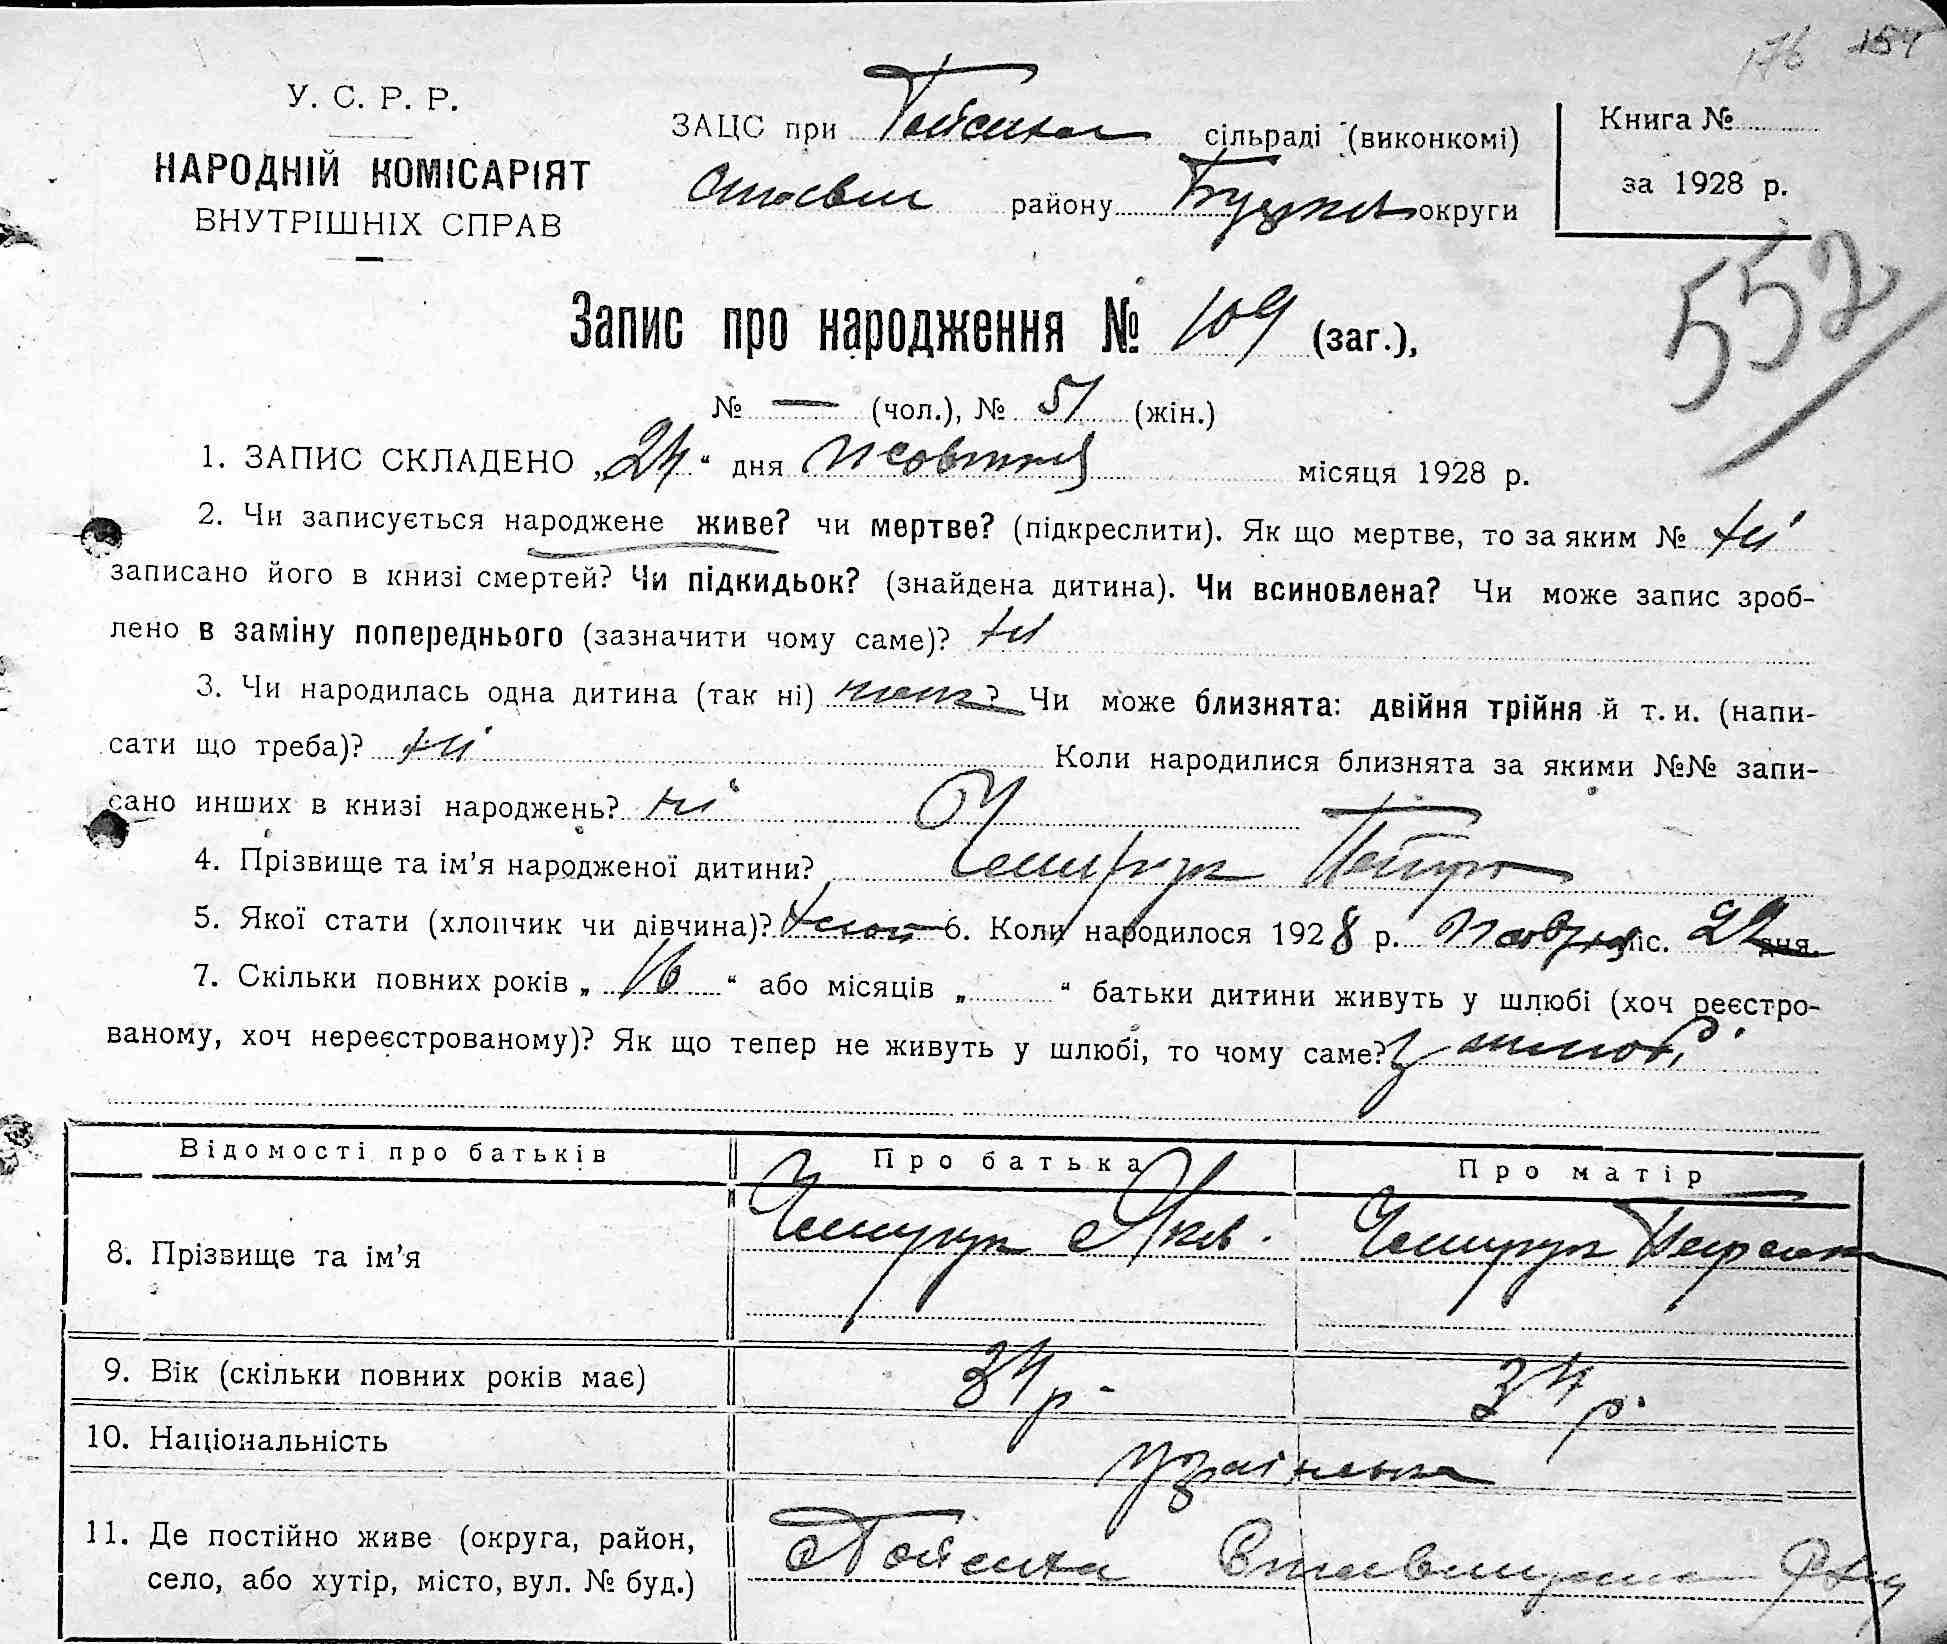 176 154
У. С. Р. Р.
НАРОДНІЙ КОМІСАРІЯТ
ВНУТРІШНІХ СПРАВ
ЗАЦС при сільраді (виконкомі)
району округи
Книга №
за 1928 р.
552
Запис про народження № 109 (заг.),
№ — (чол.), № 51 (жін.)
1. ЗАПИС СКЛАДЕНО „24“ дня Жовтня місяця 1928 р.
2. Чи записується народжене живе? чи мертве? (підкреслити). Як що мертве, то за яким № ні
записано його в книзі смертей? Чи підкидьок? (знайдена дитина). Чи всиновлена? Чи може запис зроб-
лено в заміну попереднього (зазначити чому саме)? ні
3. Чи народилась одна дитина (так ні) так? Чи може близнята: двійня трійня й т. и. (напи-
сати що треба)? ні Коли народилися близнята за якими №№ запи-
сано инших в книзі народжень? ні
4. Прізвище та ім’я народженої дитини?
5. Якої стати (хлопчик чи дівчина)? 6. Коли народилося 1928 р. Жовтня міс. дня.
7. Скільки повних років „16“ або місяців „ “ батьки дитини живуть у шлюбі (хоч реєстро-
ваному, хоч нереєстрованому)? Як що тепер не живуть у шлюбі, то чому саме? у шлюбі
Відомості про батьків Про батька Про матір
8. Прізвище та ім’я Яків
9. Вік (скільки повних років має) 34 р. 34 р.
10. Національність Українська
11. Де постійно живе (округа, район,
село, або хутір, місто, вул. № буд.)